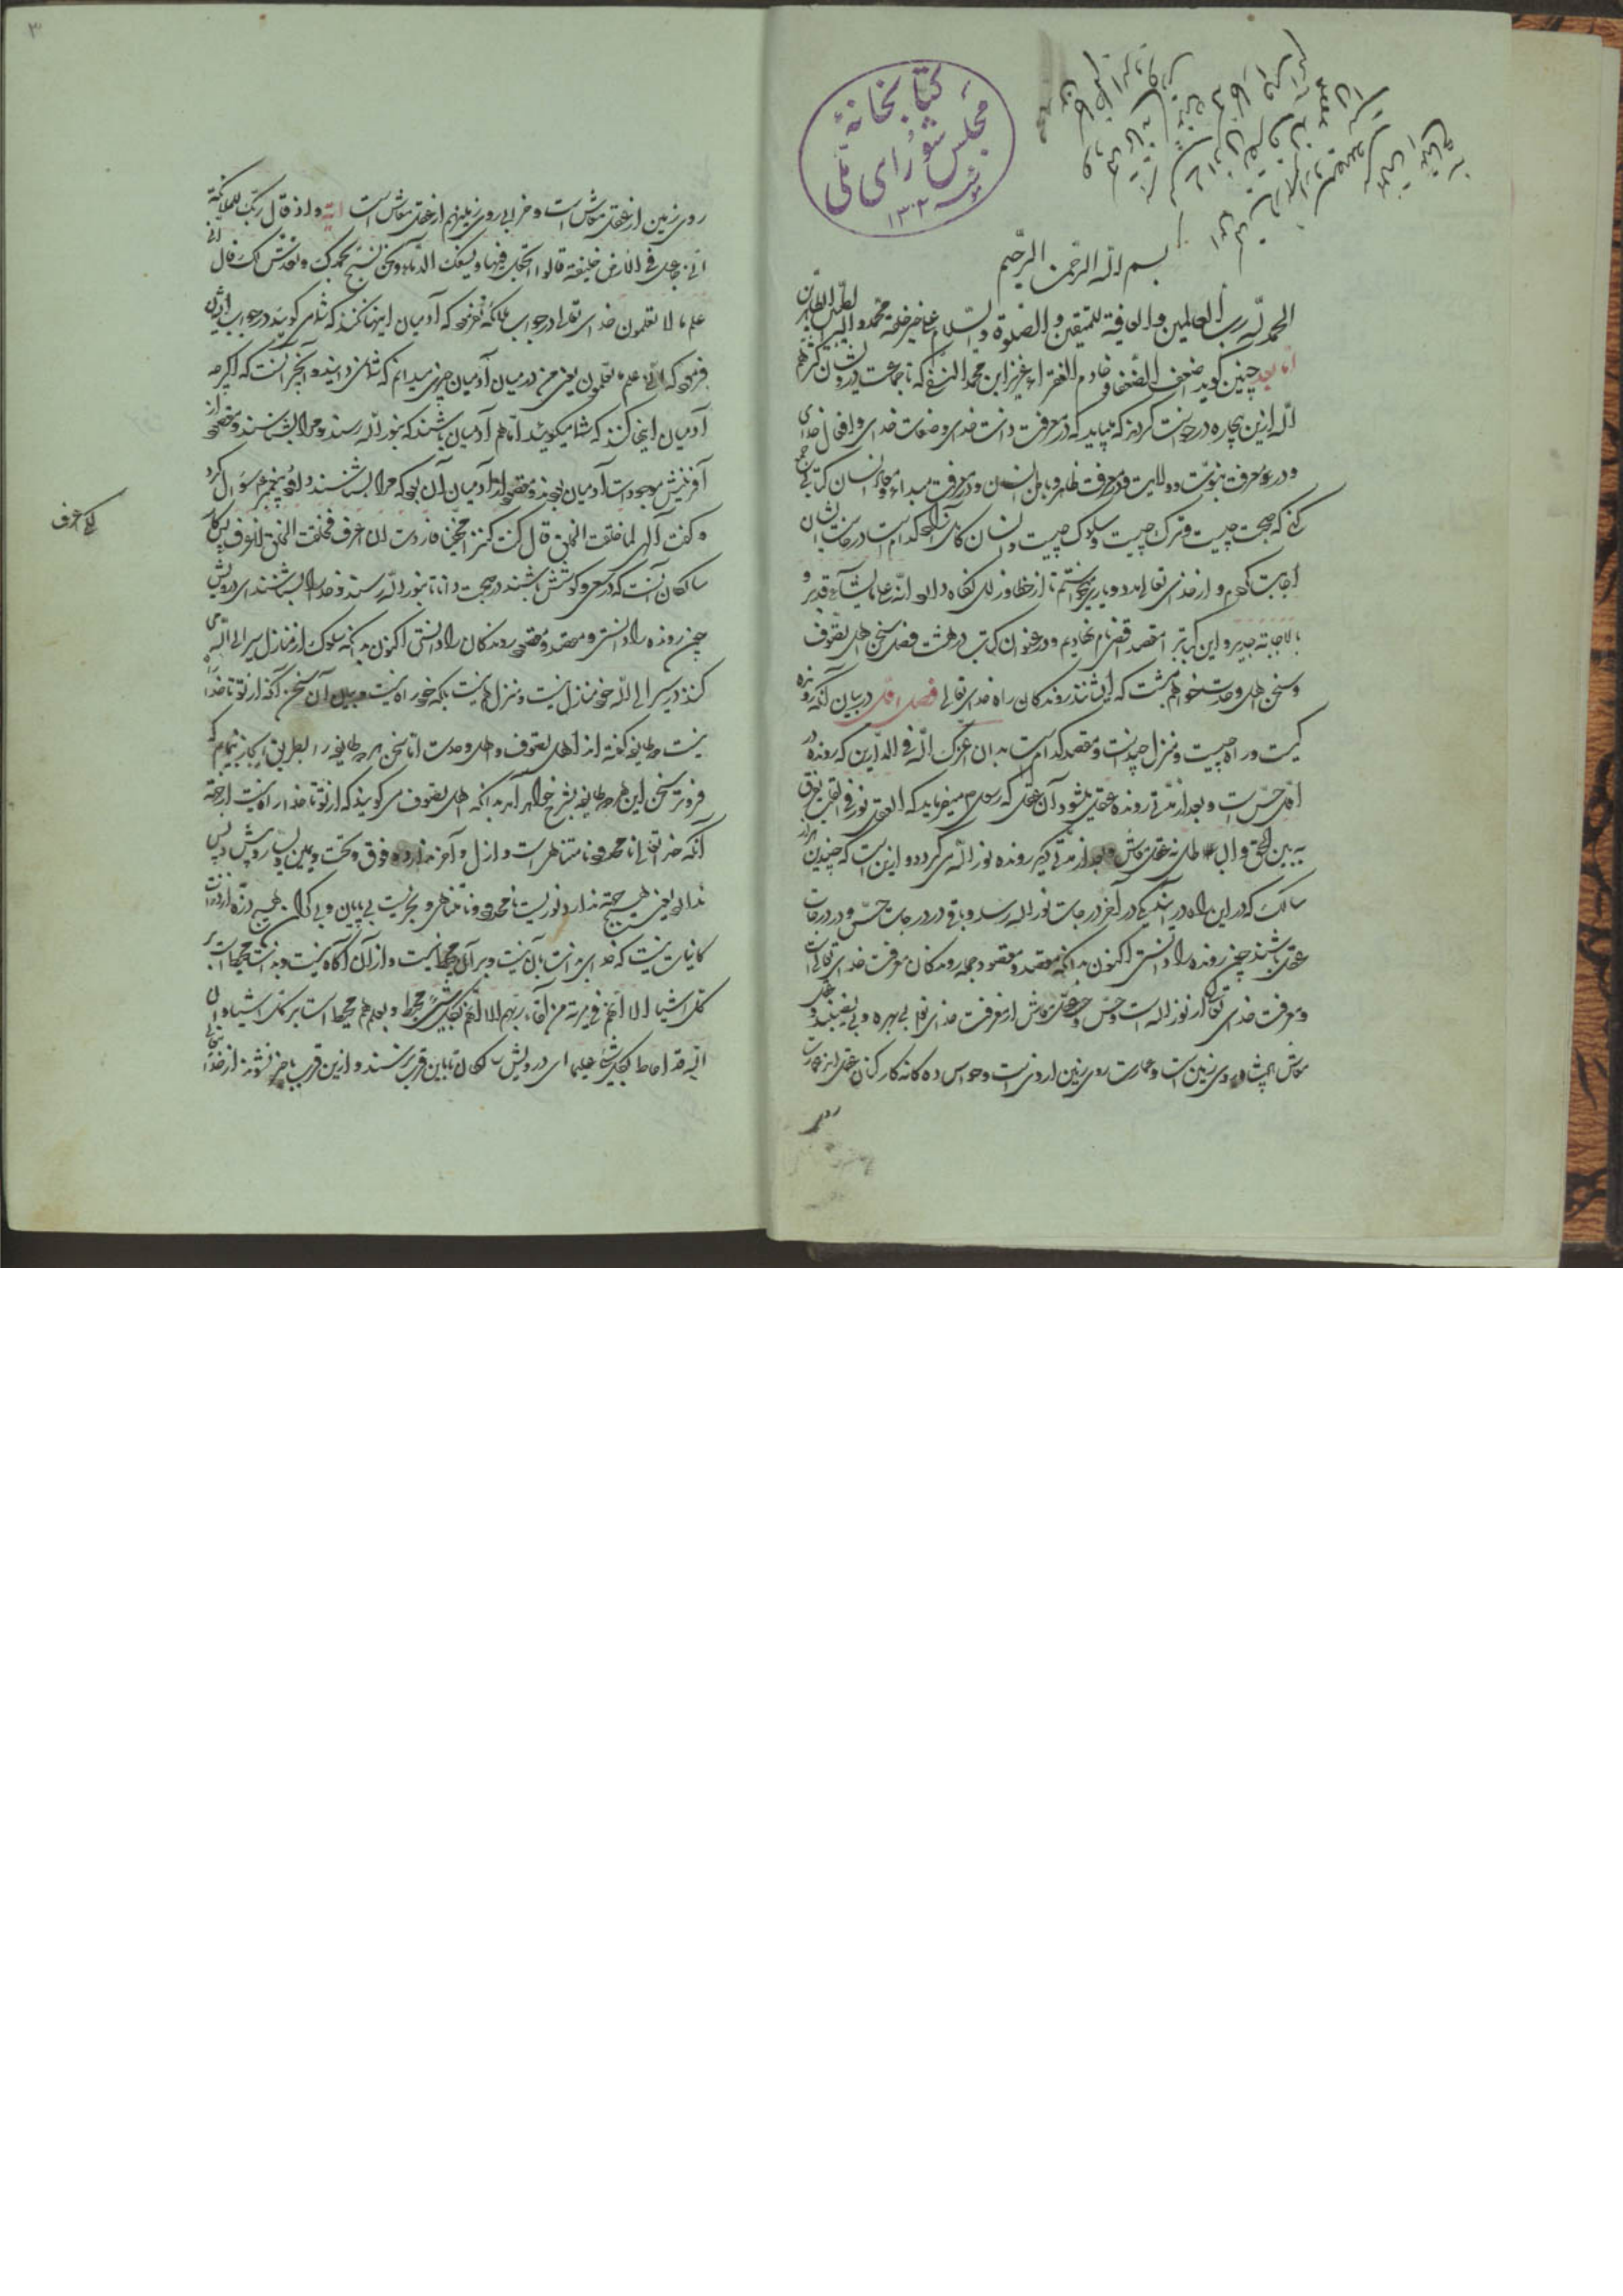 کتابخانهٔ
مجلس شورای ملی
۱۳۰۲
بسم الله الرحمن الرحیم
الحمد لله رب العالمین والعاقبة للمتقین والصلوة والسلام علی خیر خلقه محمد وآله الطیبین الطاهرین
اما بعد چنین گوید اضعف الضعفا و خادم الفقراء عزیز ابن محمد النسفی که جماعت درویشان کثرهم
الله ازین بیچاره درخواست کردند که میباید که در معرفت ذات خدای و صفات خدای و افعال خدای
و در معرفت نبوت و ولایت و در معرفت ظاهر و باطن انسان و در معرفت مبداء و معاد انسان کتابی جمع
کنی که صحبت چیست و ترک چیست و سلوک چیست و انسان کامل کدام است درخواست ایشان
اجابت کردم و از خدای تعالی مدد و یاری خواستم تا از خطا و زلل نگاه دارد انه علی ما یشاء قدیر و
بالاجابة جدیر و این کتاب را مقصد اقصی نام نهادیم و در عنوان کتاب در هشت فصل سخن اهل تصوف
و سخن اهل وحدت خواهم نبشت که ایشانند روندکان راه خدای تعالی فصل اول در بیان آنکه رونده
کیست و راه چیست و منزل چیست و مقصد کدام است بدان اعزک الله فی الدارین که رونده در
اول حس است و بعد از مدتی رونده عقل میشود آن عقل که رسول م میفرماید که العقل نور فی القلب یفرق
به بین الحق والباطل نه عقل معاش و بعد از مدتی دیگر رونده نور الله می گردد و از این است که چندین هزار
سالک که در این راه در آیند یکی در آخر درجات نور الله رسد و باقی در درجات حس و در درجات
عقل باشند چون رونده را دانستی اکنون بدانکه مقصد و مقصود جمله روندکان معرفت خدای تعالی است
و معرفت خدای تعالی کار نور الله است و حس و عقل معاش از معرفت خدای تعالی بی بهره و بی نصیبند و عقل
معاش پادشاه روی زمین است و عمارت روی زمین از وی است و حواس ده کانه کارکنان عقل اند عمارت
روی زمین از عقل معاش است و خرابی روی زمین هم از عقل معاش است آیة و اذ قال ربک للملائکة
انی جاعل فی الارض خلیفة قالوا اتجعل فیها و یسفک الدماء ونحن نسبح بحمدک ونقدس لک قال انی
علم ما لا تعلمون خدای تعالی در جواب ملائکه نفرمود که آدمیان اینها نکنند که شما می گویید در جواب ایشان
فرمود که انی اعلم ما لا تعلمون یعنی من در میان آدمیان چیزی میدانم که شما نمی دانید و آن چیز آنست که اگرچه
آدمیان اینها کنند که شما میگویید اما هم آدمیان باشند که بنور الله رسند و مرا بشناسند و مقصود از
آفرینش موجودات آدمیان بودند و مقصود از آدمیان آن بود که مرا بشناسند داود پیغمبر ع سؤال کرد
و گفت الهی لماذا خلقت الخلق قال کنت کنزا مخفیا فاردت ان اعرف فخلقت الخلق لاعرف پس کار
سالکان آنست که در سعی و کوشش باشند در صحبت دانا تا بنور الله رسند و خدا را بشناسند ای درویش
چون رونده را دانستی و مقصد و مقصود روندکان را دانستی اکنون بدانکه سلوک از منازل سیر الی الله می
کنند در سیر الی الله خود منازل نیست و منزل هم نیست بلکه خود راه نیست و بیان آن سخن آنکه از تو تا خدا راه
نیست دو طایفه گفته اند اهل تصوف و اهل وحدت اما سخن هر دو طایفه را بطریق ایجاز بنمایم که
فروتر سخن این هر دو طایفه بشرح خواهد آمد بدانکه اهل تصوف می گویند که از تو تا خدا راه نیست از جهة
آنکه خدا تعالی نامحدود و نامتناهی است و اول و آخر ندارد و فوق و تحت و یمین و یسار و پیش و پس
ندارد یعنی هیچ جهتی ندارد نوریست نامحدود و نامتناهی و بحریست بی پایان و بی کران هیچ ذره از ذرات
کاینات نیست که خدای بذات با آن نیست و بر آن محیط نیست و از آن آگاه نیست و بذات محیط است بر
کل اشیا الا انهم فی مریة من لقاء ربهم الا انه بکل شیء محیط و بعلم هم محیط است بر کل اشیا و ان
الله قد احاط بکل شیء علما ای درویش سالکان تا باین قرب نرسند و ازین قرب با خبر نشوند از خدا
لکی اعرف
۳